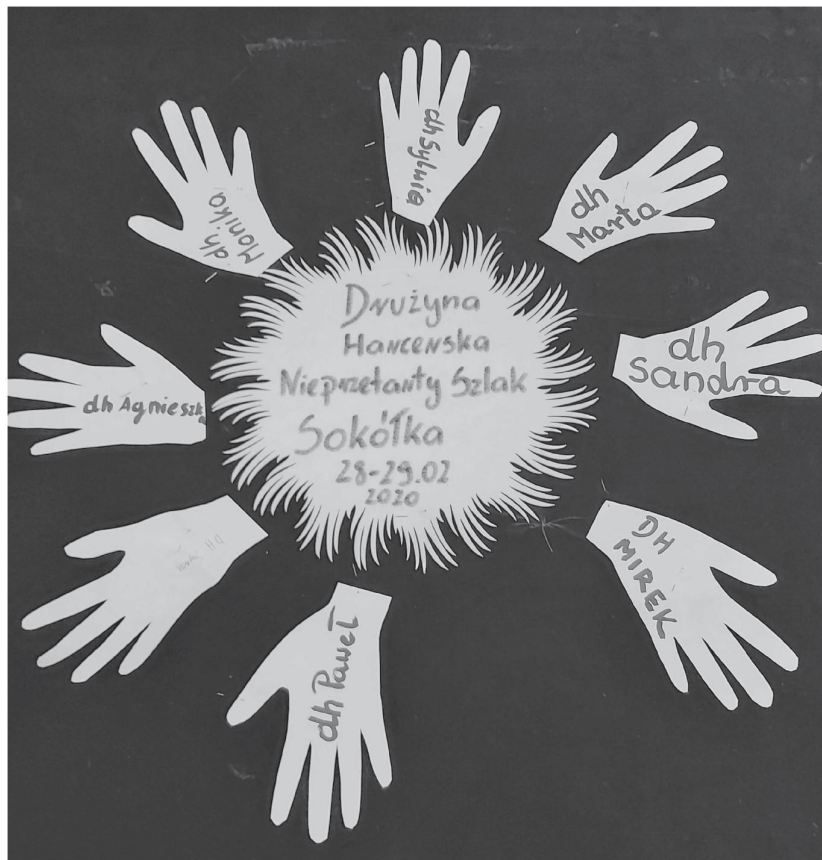 Drużyna
Harcerska
Nieprzetarty Szlak
Sokółka
28-29.02
2020
dh Sylwia
dh
Marta
dh
Sandra
DH
MIREK
dh Paweł
DH
dh Agnieszka
dh
Monika